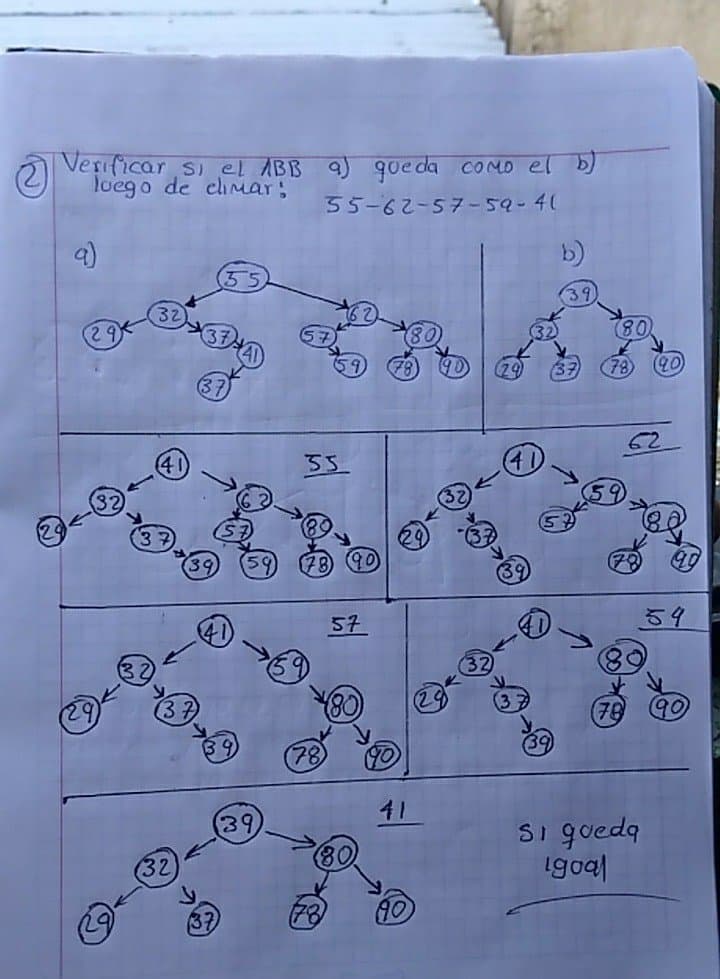 2) Verificar si el ABB a) queda como el b)
luego de elimar:
55-62-57-59-41
a)
b)
55
32 62
29 37 57 80
41 59 78 90
37
39
32 80
29 37 78 90
55
41
32 62
29 37 57 80
39 59 78 90
62
41
32 59
29 37 57 80
39 78 90
57
41
32 59
29 37 80
39 78 90
59
41
32 80
29 37 78 90
39
41
39
32 80
29 37 78 90
si queda
igual